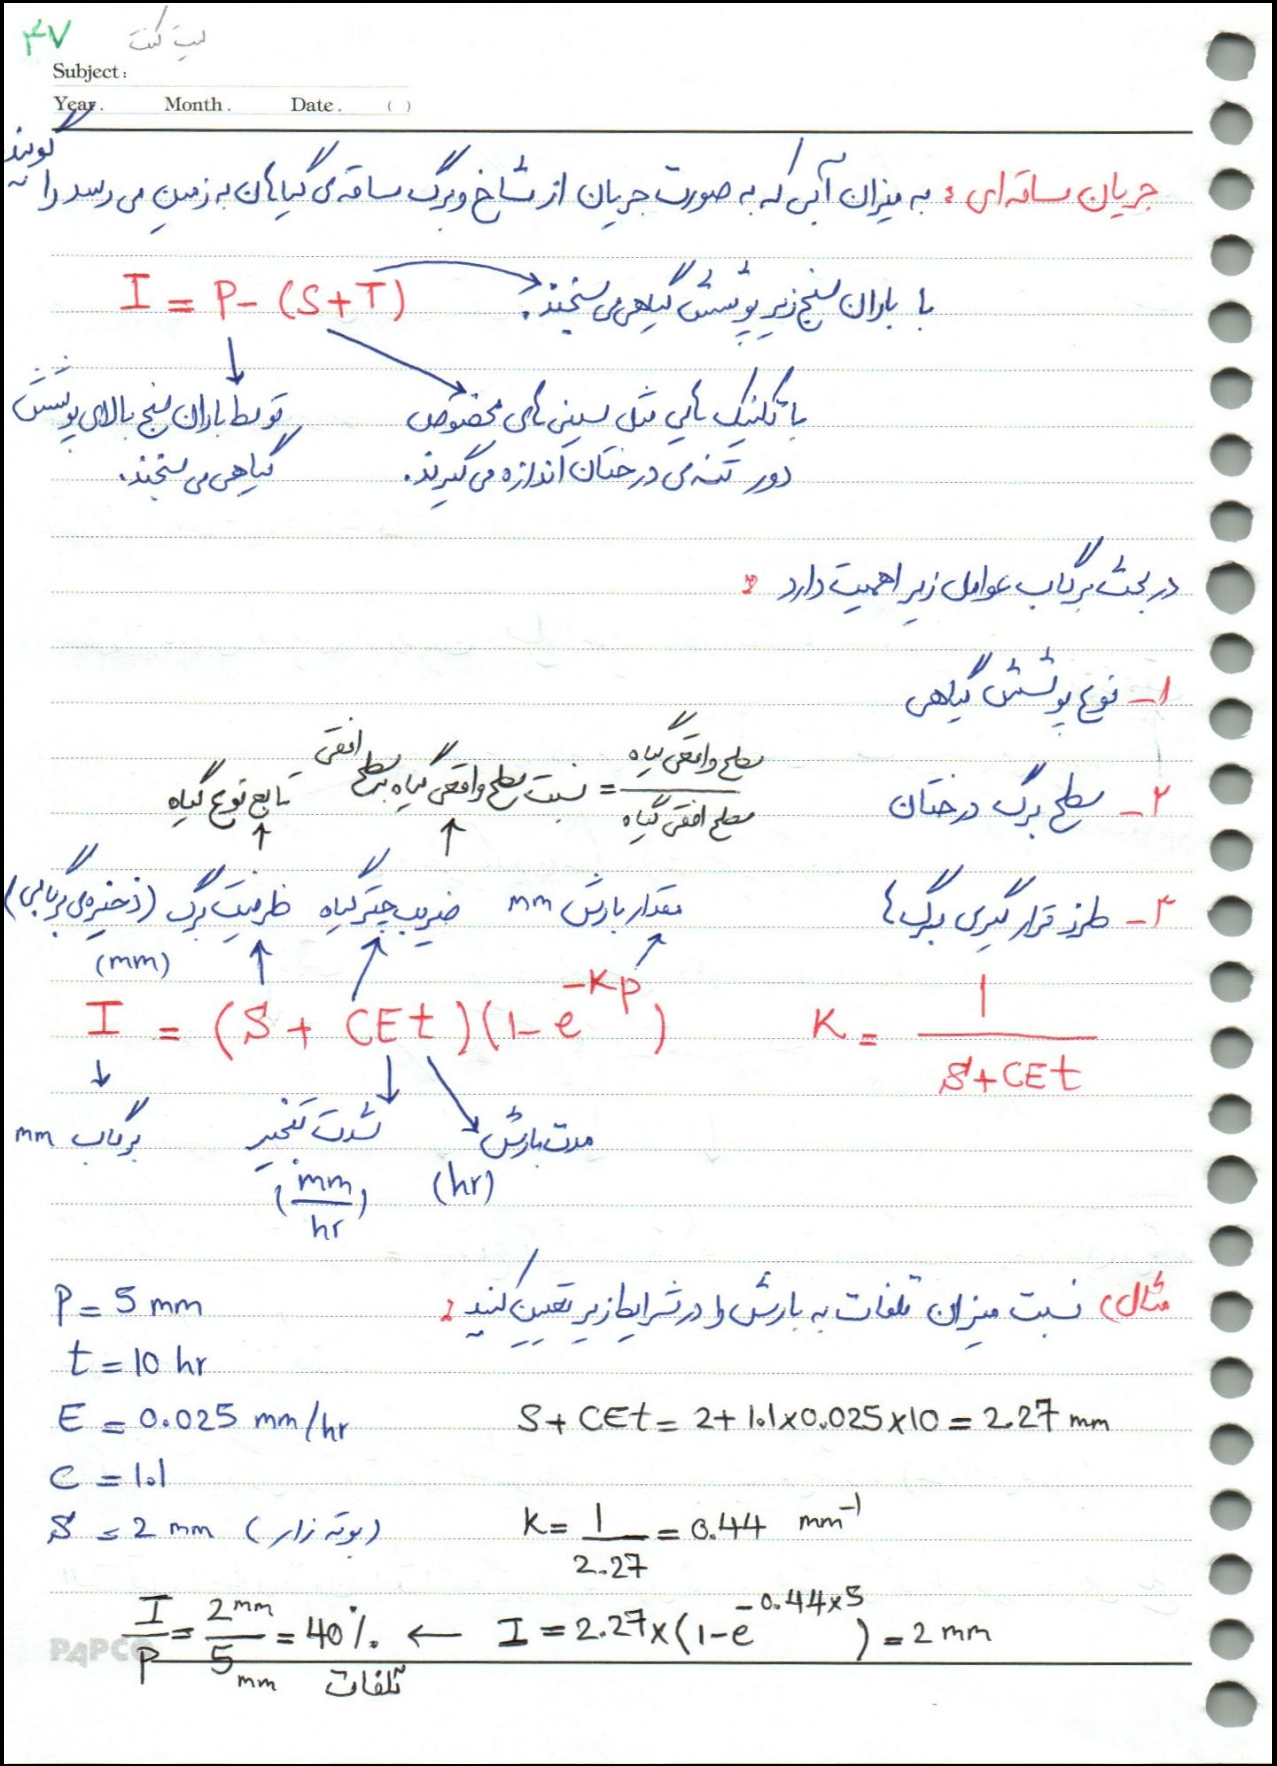 ۴۷
Subject:
Year. Month. Date. ( )
جریان ساقه ای : به میزان آبی که به صورت جریان از شاخ و برگ ساقه ی گیاهان به زمین می رسد را گویند
I = P - (S+T)
با باران سنج زیر پوشش گیاهی می سنجند.
با تکنیک هایی مثل سینی های مخصوص
دور تنه ی درختان اندازه می گیرند.
توسط باران سنج بالای پوشش
گیاهی می سنجند.
در بحث برگاب عوامل زیر اهمیت دارد :
۱- نوع پوشش گیاهی
۲- سطح برگ درختان
سطح واقعی گیاه
سطح افقی گیاه
= نسبت سطح واقعی گیاه به سطح افقی
تابع نوع گیاه
۳- طرز قرار گیری برگ ها
مقدار بارش mm
ضریب چتر گیاه
ظرفیت برگ (ذخیره ی برگابی)
(mm)
I = (S + CEt)(1-e^-KP)
K = 1/(S+CEt)
برگاب mm
شدت تبخیر
(mm/hr)
مدت بارش
(hr)
مثال) نسبت میزان تلفات به بارش را در شرایط زیر تعیین کنید :
P = 5 mm
t = 10 hr
E = 0.025 mm/hr
C = 1.1
S = 2 mm (بوته زار)
S + CEt = 2+1.1×0.025×10 = 2.27 mm
K = 1/2.27 = 0.44 mm^-1
I = 2.27×(1-e^-0.44×5) = 2 mm
← I/P = 2mm/5mm = 40 %. تلفات
PAPCO